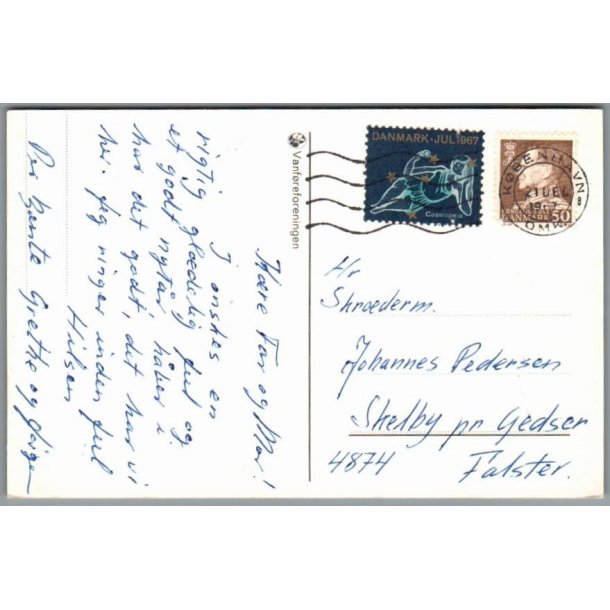 Kære Far og Mor!
I ønskes en
rigtig glædelig jul og
et godt nytår håber i
har det godt, det har vi
her. Jeg ringer inden jul
Hilsen
Per Bente Grethe og
Vanføreforeningen
DANMARK · JUL 1967
Cassiopeia
KØBENHAVN
21 DEC
1967
OMK
DANMARK 50
Hr
Skræderm.
Johannes Pedersen
Skelby pr Gedser
4874 Falster.